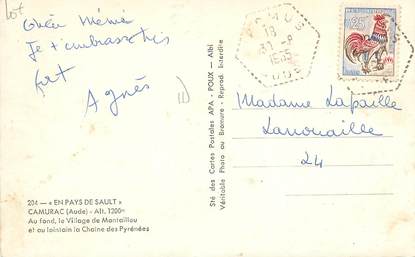 Lot
Chère Mémé
Je t'embrasse très
fort
Agnès
204 — « EN PAYS DE SAULT »
CAMURAC (Aude) - Alt. 1200m
Au fond, le Village de Montaillou
et au lointain la Chaîne des Pyrénées
Sté des Cartes Postales APA - POUX - Albi
Véritable Photo au Bromure - Reprod. Interdite
18
AUDE
0,25
Madame Lapaille
Lanouaille
24